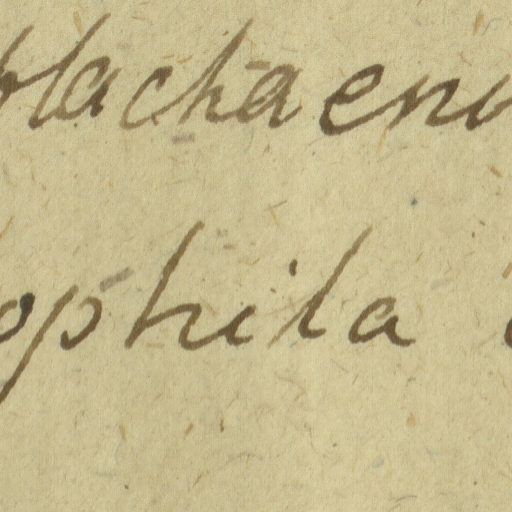 blachaen
ophila